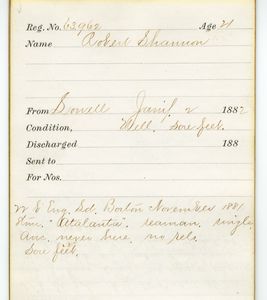 Reg. No. 63962 Age 21
Name Robert Shannon
From Lowell Jany 2 1882
Condition, Well. sore feet.
Discharged 188
Sent to
For Nos.
Eng. Ld. Boston November 1881
Stmr "Atalanta". seaman. single
never here. no rels.
Sore feet.